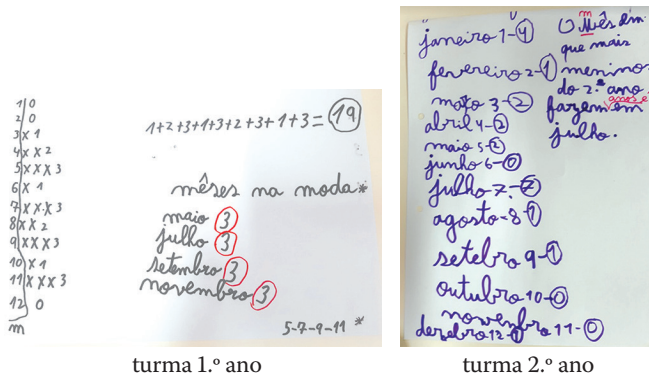 1 0
2 0
3 x 1
4 x x 2
5 x x x 3
6 x 1
7 x x x 3
8 x x 2
9 x x x 3
10 x 1
11 x x x 3
12 0
m
1+2+3+1+3+2+3+1+3=19
mêses na moda*
maio 3
julho 3
setembro 3
novembro 3
5-7-9-11 *
turma 1.º ano
janeiro 1-4
fevereiro 2-1
março 3-2
abril 4-2
maio 5-2
junho 6-0
julho 7-
agosto-8-1
setebro 9-1
outubro 10-0
novembro 11-0
dezebro 12-1
m
O Mês em
que mais
meninos
do 2.º ano
anos é
fazem em
julho.
turma 2.º ano